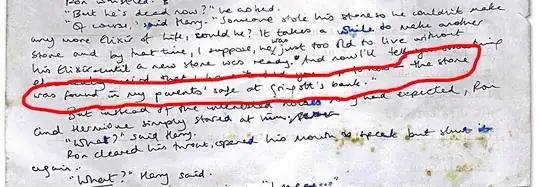 "But he's dead now?" he asked.
"Of course," said Harry. "Someone stole his stone so he couldn't make
any more Elixir of Life, could he? It takes a while to make another
stone and by that time, I suppose, he was just too old to live without
his Elixir until a new stone was ready. And now I'll tell you something
the stone
was found in my parents' safe at Gringott's bank."
But instead of the interested noises he had expected, Ron
and Hermione simply stared at him.
"What?" said Harry.
Ron cleared his throat, opened his mouth to speak but shut it
again.
"What?" Harry said.